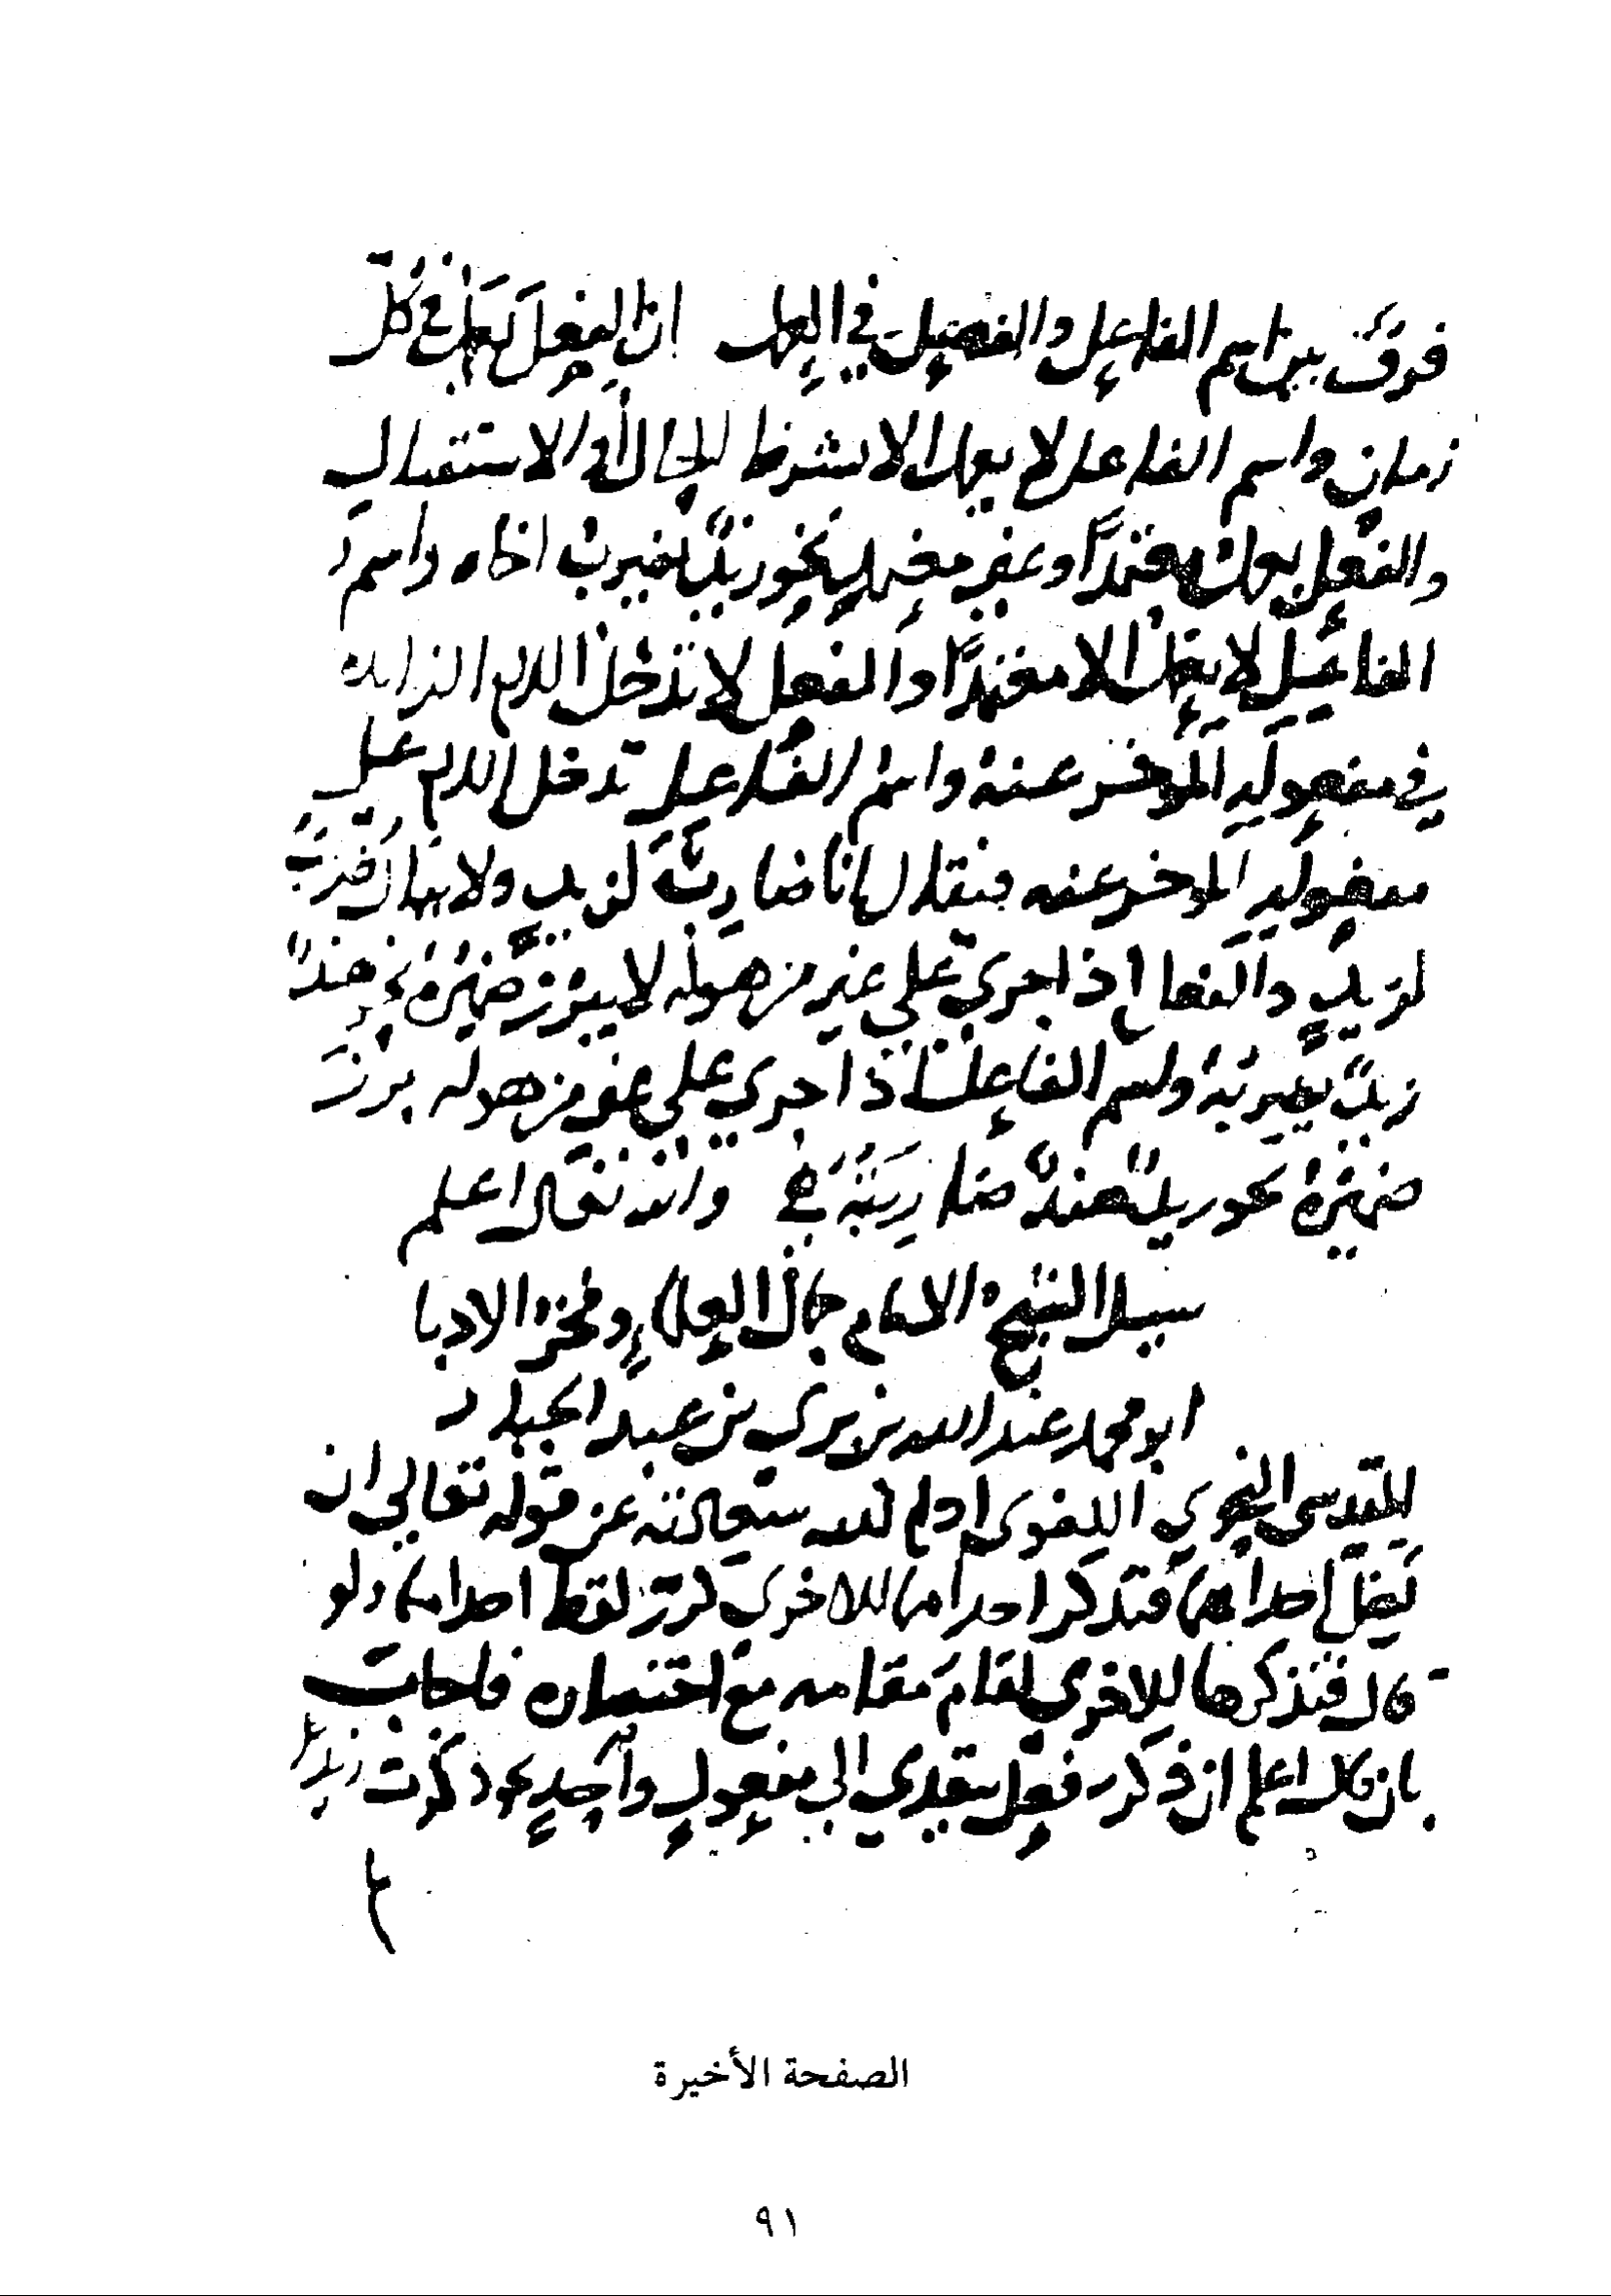 فرق بين اسم الفاعل والفعل في العمل ان الفعل يعمل في كل
زمان واسم الفاعل لا يعمل الا بشرط الحال او الاستقبال
والفعل يعمل معتمدًا وغير معتمد نحو زيدٌ ضربت اخاه واسم
الفاعل لا يعمل الا معتمدًا والفعل لا تدخل اللام الزائده
في مفعوله المؤخر عنه واسم الفاعل تدخل اللام على
مفعوله المؤخر عنه فيقال انا ضاربٌ لزيدٍ ولا يقال ضربت
لزيدٍ والفعل اذا جرى على غير من هو له لا يبرز ضميره نحو هندٌ
زيدٌ تضربه واسم الفاعل اذا جرى على غير من هو له برز
ضميره نحو زيدٌ هندٌ ضاربته هي والله تعالى اعلم
سيل الشيخ الامام جمال العلماء وفخر الادبا
ابو محمد عبد الله بن بري بن عبد الجبار
المقدسي النحوي اللغوي ادام الله سعادته عن قوله تعالى ان
تضل احداهما فتذكر احداهما الاخرى لم كرر لفظ احداهما ولو
قال فتذكرها الاخرى لقام مقامه مع اختصاره فاجاب
بان قال اعلم ان ذكر فعل يتعدي الى مفعولٍ واحدٍ نحو ذكرت زيدًا
الصفحة الأخيرة
٩١